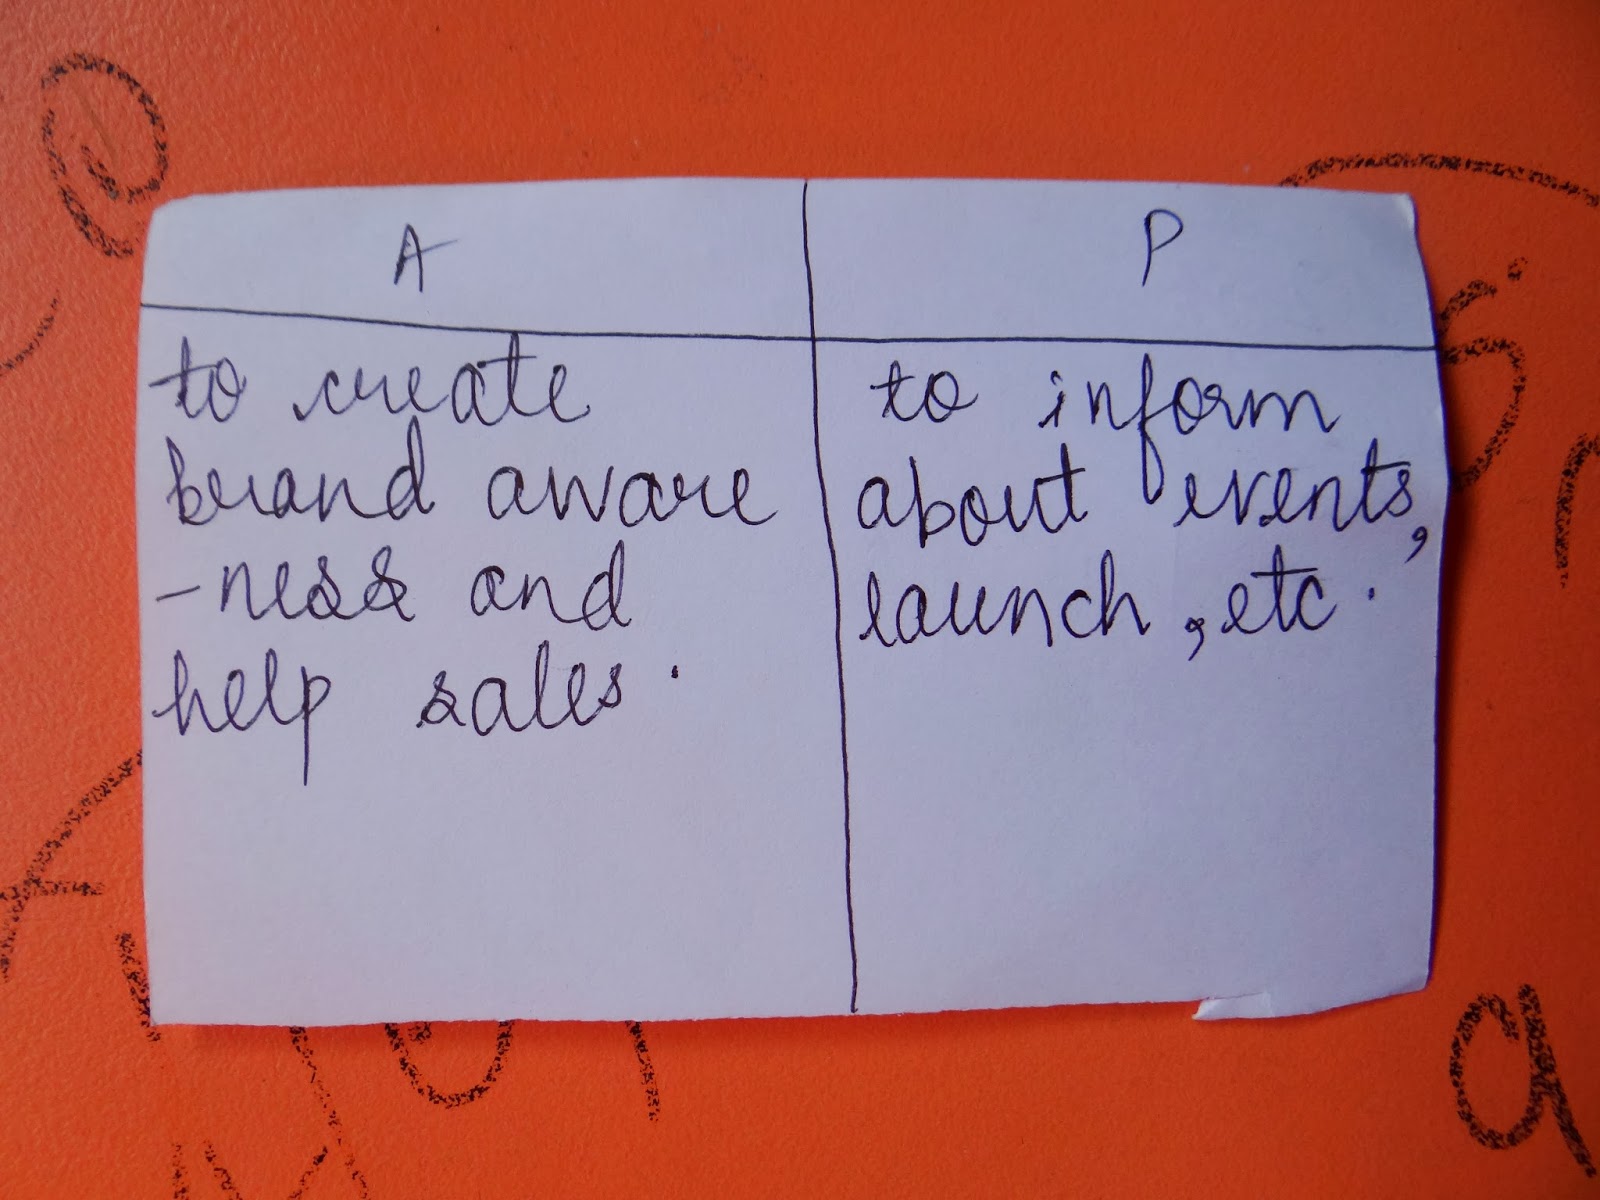 A
P
to create
brand aware
-ness and
help sales.
to inform
about events,
launch, etc.
a